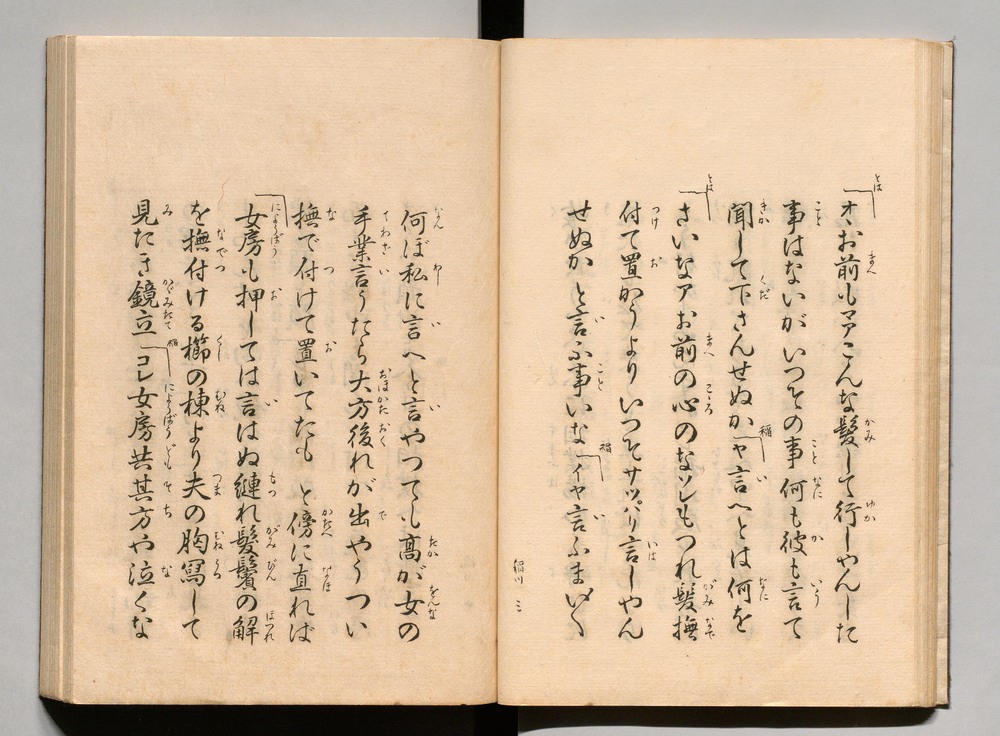 オお前もマアこんな髪して行しやんした
事はないがいつその事何も彼も言て
聞して下さんせぬかヤ言へとは何を
さいなアお前の心のなソレもつれ髪撫
付て置かうよりいつそサッパリ言しやん
せぬかと言ふ事いなイヤ言ふまい〱
稲川 三
何ぼ私に言へと言やつても高が女の
手業言うたら大方後れが出やうつい
撫で付けて置いてたもと傍に直れば
女房も押しては言はぬ縺れ髪鬢の解
を撫付ける櫛の棟より夫の胸写して
見たき鏡立コレ女房共其方や泣くな